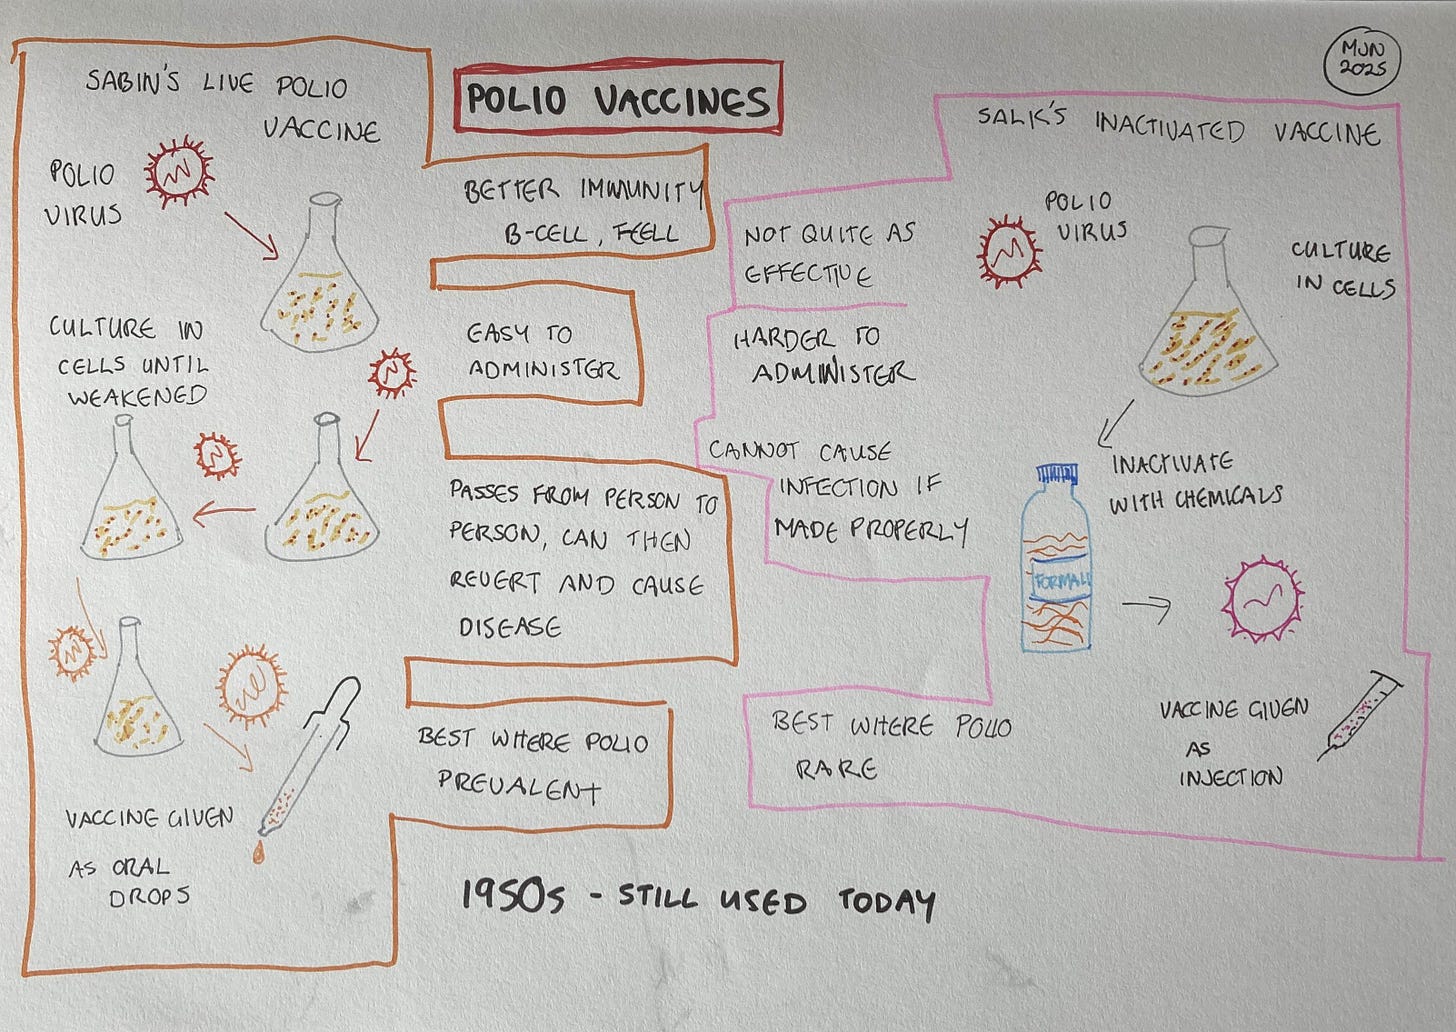 POLIO VACCINES
MJN
2025
SABIN'S LIVE POLIO
VACCINE
POLIO
VIRUS
CULTURE IN
CELLS UNTIL
WEAKENED
VACCINE GIVEN
AS ORAL
DROPS
BETTER IMMUNITY
B-CELL, T-CELL
EASY TO
ADMINISTER
PASSES FROM PERSON TO
PERSON, CAN THEN
REVERT AND CAUSE
DISEASE
BEST WHERE POLIO
PREVALENT
SALK'S INACTIVATED VACCINE
POLIO
VIRUS
CULTURE
IN CELLS
INACTIVATE
WITH CHEMICALS
FORMALI
VACCINE GIVEN
AS
INJECTION
NOT QUITE AS
EFFECTIVE
HARDER TO
ADMINISTER
CANNOT CAUSE
INFECTION IF
MADE PROPERLY
BEST WHERE POLIO
RARE
1950s - STILL USED TODAY